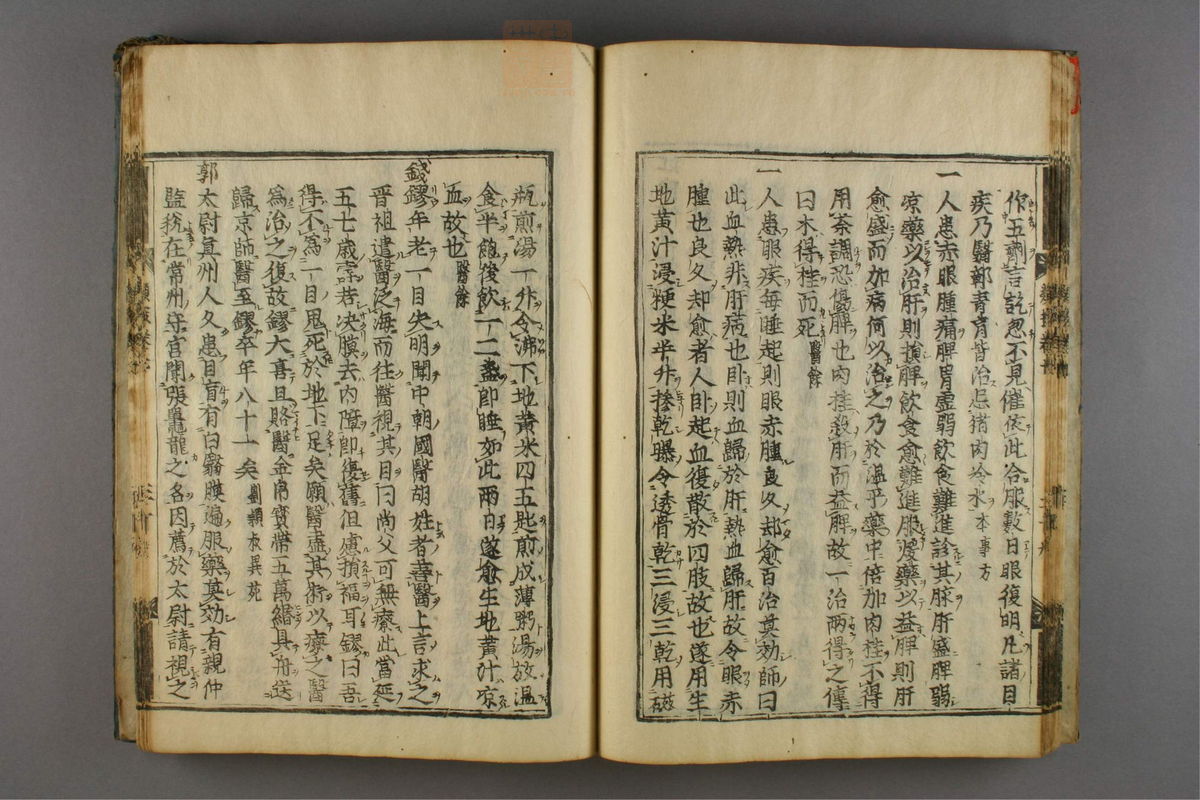 作五劑言訖忽不見催依此合服數日眼復明凡諸目
疾乃醫鄣青盲皆治忌猪肉冷水本事方
一人患赤眼腫痛脾胃虛弱飲食難進診其脉肝盛脾弱
凉藥以治肝則損脾飲食愈難進服煖藥以益脾則肝
愈盛而加病何以治之乃於温平藥中倍加肉桂不得
用茶調恐傷脾也肉桂殺肝而益脾故一治兩得之傳
曰木得桂而死醫餘
一人患眼疾每睡起則眼赤腫良久却愈百治莫効師曰
此血熱非肝病也卧則血歸於肝熱血歸肝故令眼赤
腫也良久却愈者人卧起血復散於四肢故也遂用生
地黄汁浸粳米半升摻乾曝令透骨乾三浸三乾用磁
瓶煎湯一升令沸下地黄米四五匙煎成薄粥湯放温
食半飽後飲一二盞即睡如此兩日遂愈生地黄汁凉
血故也醫餘
錢鏐年老一目失明聞中朝國醫胡姓者善醫上言求之
晋祖遣醫泛海而往醫視其目曰尚父可無療此當延
五七歳壽若决膜去内障即復舊但慮損福耳鏐曰吾
得不為一目鬼死於地下足矣願醫盡其術以療之醫
為治之復故鏐大喜且賂醫金帛寶帶五萬緡具舟送
歸京師醫至鏐卒年八十一矣劉穎叔異苑
郭太尉真州人久患目盲有白翳膜遍服藥莫効有親仲
監税在常州守官聞張鼉龍之名因薦於太尉請視之